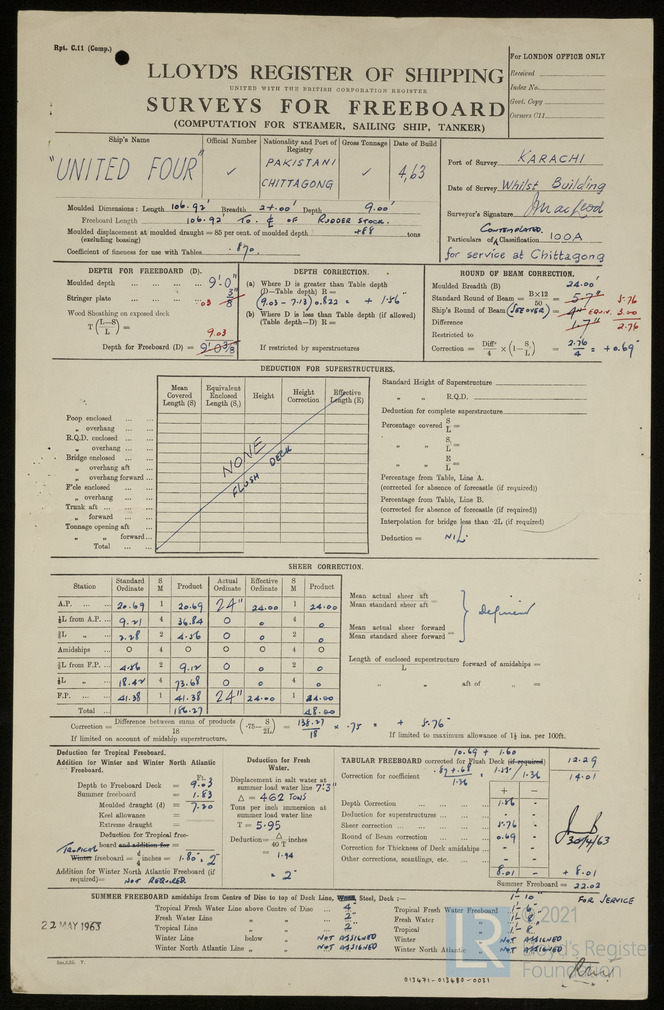 Rpt. C.11 (Comp.)
For LONDON OFFICE ONLY
Received
Index No.
Govt. Copy
Owners C11
LLOYD'S REGISTER OF SHIPPING
UNITED WITH THE BRITISH CORPORATION REGISTER
SURVEYS FOR FREEBOARD
(COMPUTATION FOR STEAMER, SAILING SHIP, TANKER)
Ship's Name Official Number Nationality and Port of Registry Gross Tonnage Date of Build
"UNITED FOUR" ✓ PAKISTANI CHITTAGONG ✓ 4,63
Port of Survey KARACHI
Date of Survey Whilst Building
Surveyor's Signature
Contemplated
Particulars of Classification 100A
for service at Chittagong
Moulded Dimensions: Length 106.92' Breadth 24.00' Depth 9.00'
Freeboard Length 106.92' To ℄ of RUDDER STOCK.
Moulded displacement at moulded draught = 85 per cent. of moulded depth 488 tons
(excluding bossing)
Coefficient of fineness for use with Tables .870
DEPTH FOR FREEBOARD (D).
Moulded depth 9'-0"
Stringer plate .03 3/8"
Wood Sheathing on exposed deck
T (L-S/L) =
9.03
Depth for Freeboard (D) = 9'0 3/8
DEPTH CORRECTION.
(a) Where D is greater than Table depth
(D-Table depth) R =
(9.03 - 7.13) 0.822 = + 1.56"
(b) Where D is less than Table depth (if allowed)
(Table depth-D) R =
If restricted by superstructures
ROUND OF BEAM CORRECTION.
Moulded Breadth (B) 24.00'
Standard Round of Beam = B×12/50 = 5.7" 5.76
Ship's Round of Beam (SEE OVER) = 4" EQUIV. 3.00
Difference 1.7" 2.76
Restricted to
Correction = Diffce/4 × (1-S₁/L) = 2.76/4 = +0.69"
DEDUCTION FOR SUPERSTRUCTURES.
Mean Covered Length (S) Equivalent Enclosed Length (S₁) Height Height Correction Effective Length (E)
Poop enclosed
„ overhang
R.Q.D. enclosed
„ overhang
Bridge enclosed
„ overhang aft
„ overhang forward
F'cle enclosed
„ overhang
Trunk aft
„ forward
Tonnage opening aft
„ „ forward
Total
NONE
FLUSH DECK
Standard Height of Superstructure
„ „ R.Q.D.
Deduction for complete superstructure
Percentage covered S/L =
„ „ S₁/L =
„ „ E/L =
Percentage from Table, Line A.
(corrected for absence of forecastle (if required))
Percentage from Table, Line B.
(corrected for absence of forecastle (if required))
Interpolation for bridge less than ·2L (if required)
Deduction = NIL
SHEER CORRECTION.
Station Standard Ordinate S M Product Actual Ordinate Effective Ordinate S M Product
A.P. 20.69 1 20.69 24" 24.00 1 24.00
⅙L from A.P. 9.21 4 36.84 0 0 4 0
⅓L „ 2.28 2 4.56 0 0 2 0
Amidships 0 4 0 0 0 4 0
⅓L from F.P. 4.56 2 9.12 0 0 2 0
⅙L „ 18.42 4 73.68 0 0 4 0
F.P. 41.38 1 41.38 24" 24.00 1 24.00
Total 186.27 48.00
Mean actual sheer aft =
Mean standard sheer aft
Mean actual sheer forward =
Mean standard sheer forward
Deficient
Length of enclosed superstructure/L forward of amidships =
„ „ aft of „ =
Correction = Difference between sums of products/18 (·75-S/2L) = 138.27/18 × .75 = + 5.76"
If limited on account of midship superstructure.
If limited to maximum allowance of 1½ ins. per 100ft.
Deduction for Tropical Freeboard.
Addition for Winter and Winter North Atlantic Freeboard.
Ft.
Depth to Freeboard Deck = 9.03
Summer freeboard = 1.83
Moulded draught (d) = 7.20
Keel allowance =
Extreme draught =
Deduction for Tropical freeboard and addition for
TROPICAL
Winter freeboard = d/4 inches = 1.80 = 2"
Addition for Winter North Atlantic Freeboard (if required) = NOT REQUIRED
Deduction for Fresh Water.
Displacement in salt water at summer load water line 7'3"
Δ = 462 TONS
Tons per inch immersion at summer load water line
T = 5.95
Deduction = Δ/40 T inches
= 1.94
= 2"
10.69 + 1.60
TABULAR FREEBOARD corrected for Flush Deck (if required) 12.29
Correction for coefficient .87+.68/1.36 = 1.55/1.36 14.01
+ -
Depth Correction 1.56 -
Deduction for superstructures - -
Sheer correction 5.76 -
Round of Beam correction 0.69 -
Correction for Thickness of Deck amidships - -
Other corrections, scantlings, etc. - -
8.01 - + 8.01
Summer Freeboard = 22.02
30/4/63
SUMMER FREEBOARD amidships from Centre of Disc to top of Deck Line, Wood, Steel, Deck :— 1'- 10" FOR SERVICE
Tropical Fresh Water Line above Centre of Disc 4" Tropical Fresh Water Freeboard 1'- 6"
Fresh Water Line „ „ 2" Fresh Water „ 1'- 8"
Tropical Line „ „ 2" Tropical „ 1'- 8"
Winter Line below „ NOT ASSIGNED Winter „ NOT ASSIGNED
Winter North Atlantic Line „ „ NOT ASSIGNED Winter North Atlantic „ NOT ASSIGNED
22 MAY 1963
© 2021
LR
Lloyd's Register
Foundation
013471-013480-0031